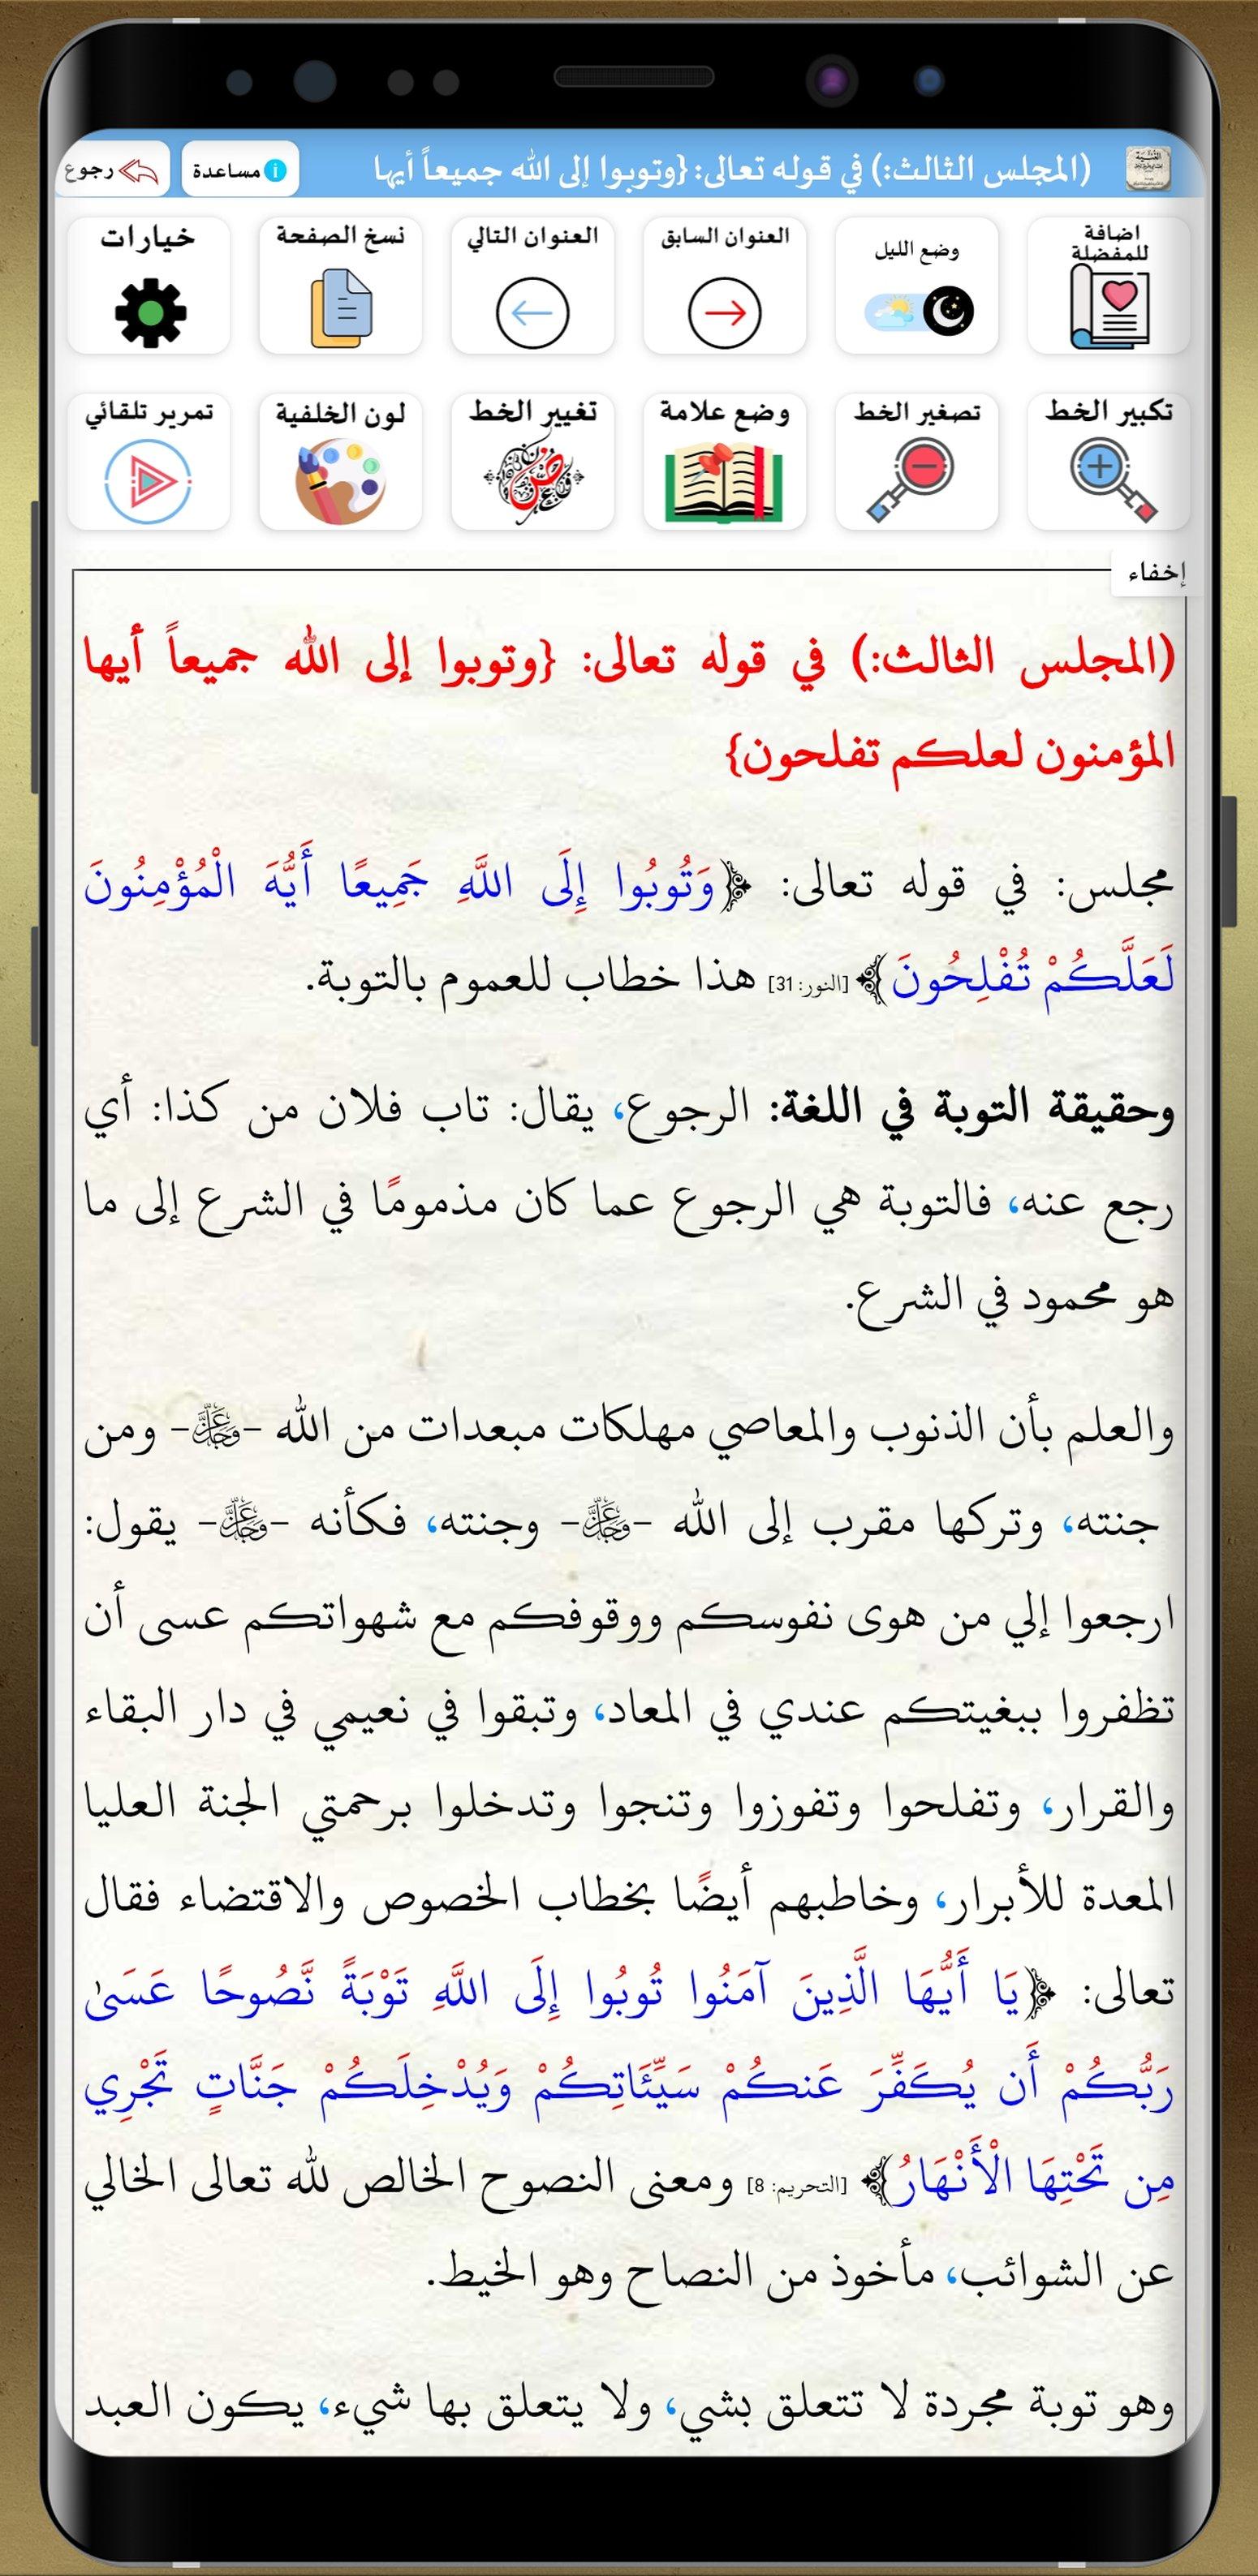 (المجلس الثالث:) في قوله تعالى: {وتوبوا إلى الله جميعاً أيها
مساعدة
رجوع
اضافة للمفضلة
وضع الليل
العنوان السابق
العنوان التالي
نسخ الصفحة
خيارات
تكبير الخط
تصغير الخط
وضع علامة
تغيير الخط
لون الخلفية
تمرير تلقائي
إخفاء
(المجلس الثالث:) في قوله تعالى: {وتوبوا إلى الله جميعاً أيها
المؤمنون لعلكم تفلحون}
مجلس: في قوله تعالى: ﴿وَتُوبُوا إِلَى اللَّهِ جَمِيعًا أَيُّهَ الْمُؤْمِنُونَ
لَعَلَّكُمْ تُفْلِحُونَ﴾ [النور: 31] هذا خطاب للعموم بالتوبة.
وحقيقة التوبة في اللغة: الرجوع، يقال: تاب فلان من كذا: أي
رجع عنه، فالتوبة هي الرجوع عما كان مذمومًا في الشرع إلى ما
هو محمود في الشرع.
والعلم بأن الذنوب والمعاصي مهلكات مبعدات من الله -عَزَّ وَجَلَّ- ومن
جنته، وتركها مقرب إلى الله -عَزَّ وَجَلَّ- وجنته، فكأنه -عَزَّ وَجَلَّ- يقول:
ارجعوا إلي من هوى نفوسكم ووقوفكم مع شهواتكم عسى أن
تظفروا ببغيتكم عندي في المعاد، وتبقوا في نعيمي في دار البقاء
والقرار، وتفلحوا وتفوزوا وتنجوا وتدخلوا برحمتي الجنة العليا
المعدة للأبرار، وخاطبهم أيضًا بخطاب الخصوص والاقتضاء فقال
تعالى: ﴿يَا أَيُّهَا الَّذِينَ آمَنُوا تُوبُوا إِلَى اللَّهِ تَوْبَةً نَّصُوحًا عَسَىٰ
رَبُّكُمْ أَن يُكَفِّرَ عَنكُمْ سَيِّئَاتِكُمْ وَيُدْخِلَكُمْ جَنَّاتٍ تَجْرِي
مِن تَحْتِهَا الْأَنْهَارُ﴾ [التحريم: 8] ومعنى النصوح الخالص لله تعالى الخالي
عن الشوائب، مأخوذ من النصاح وهو الخيط.
وهو توبة مجردة لا تتعلق بشي، ولا يتعلق بها شيء، يكون العبد